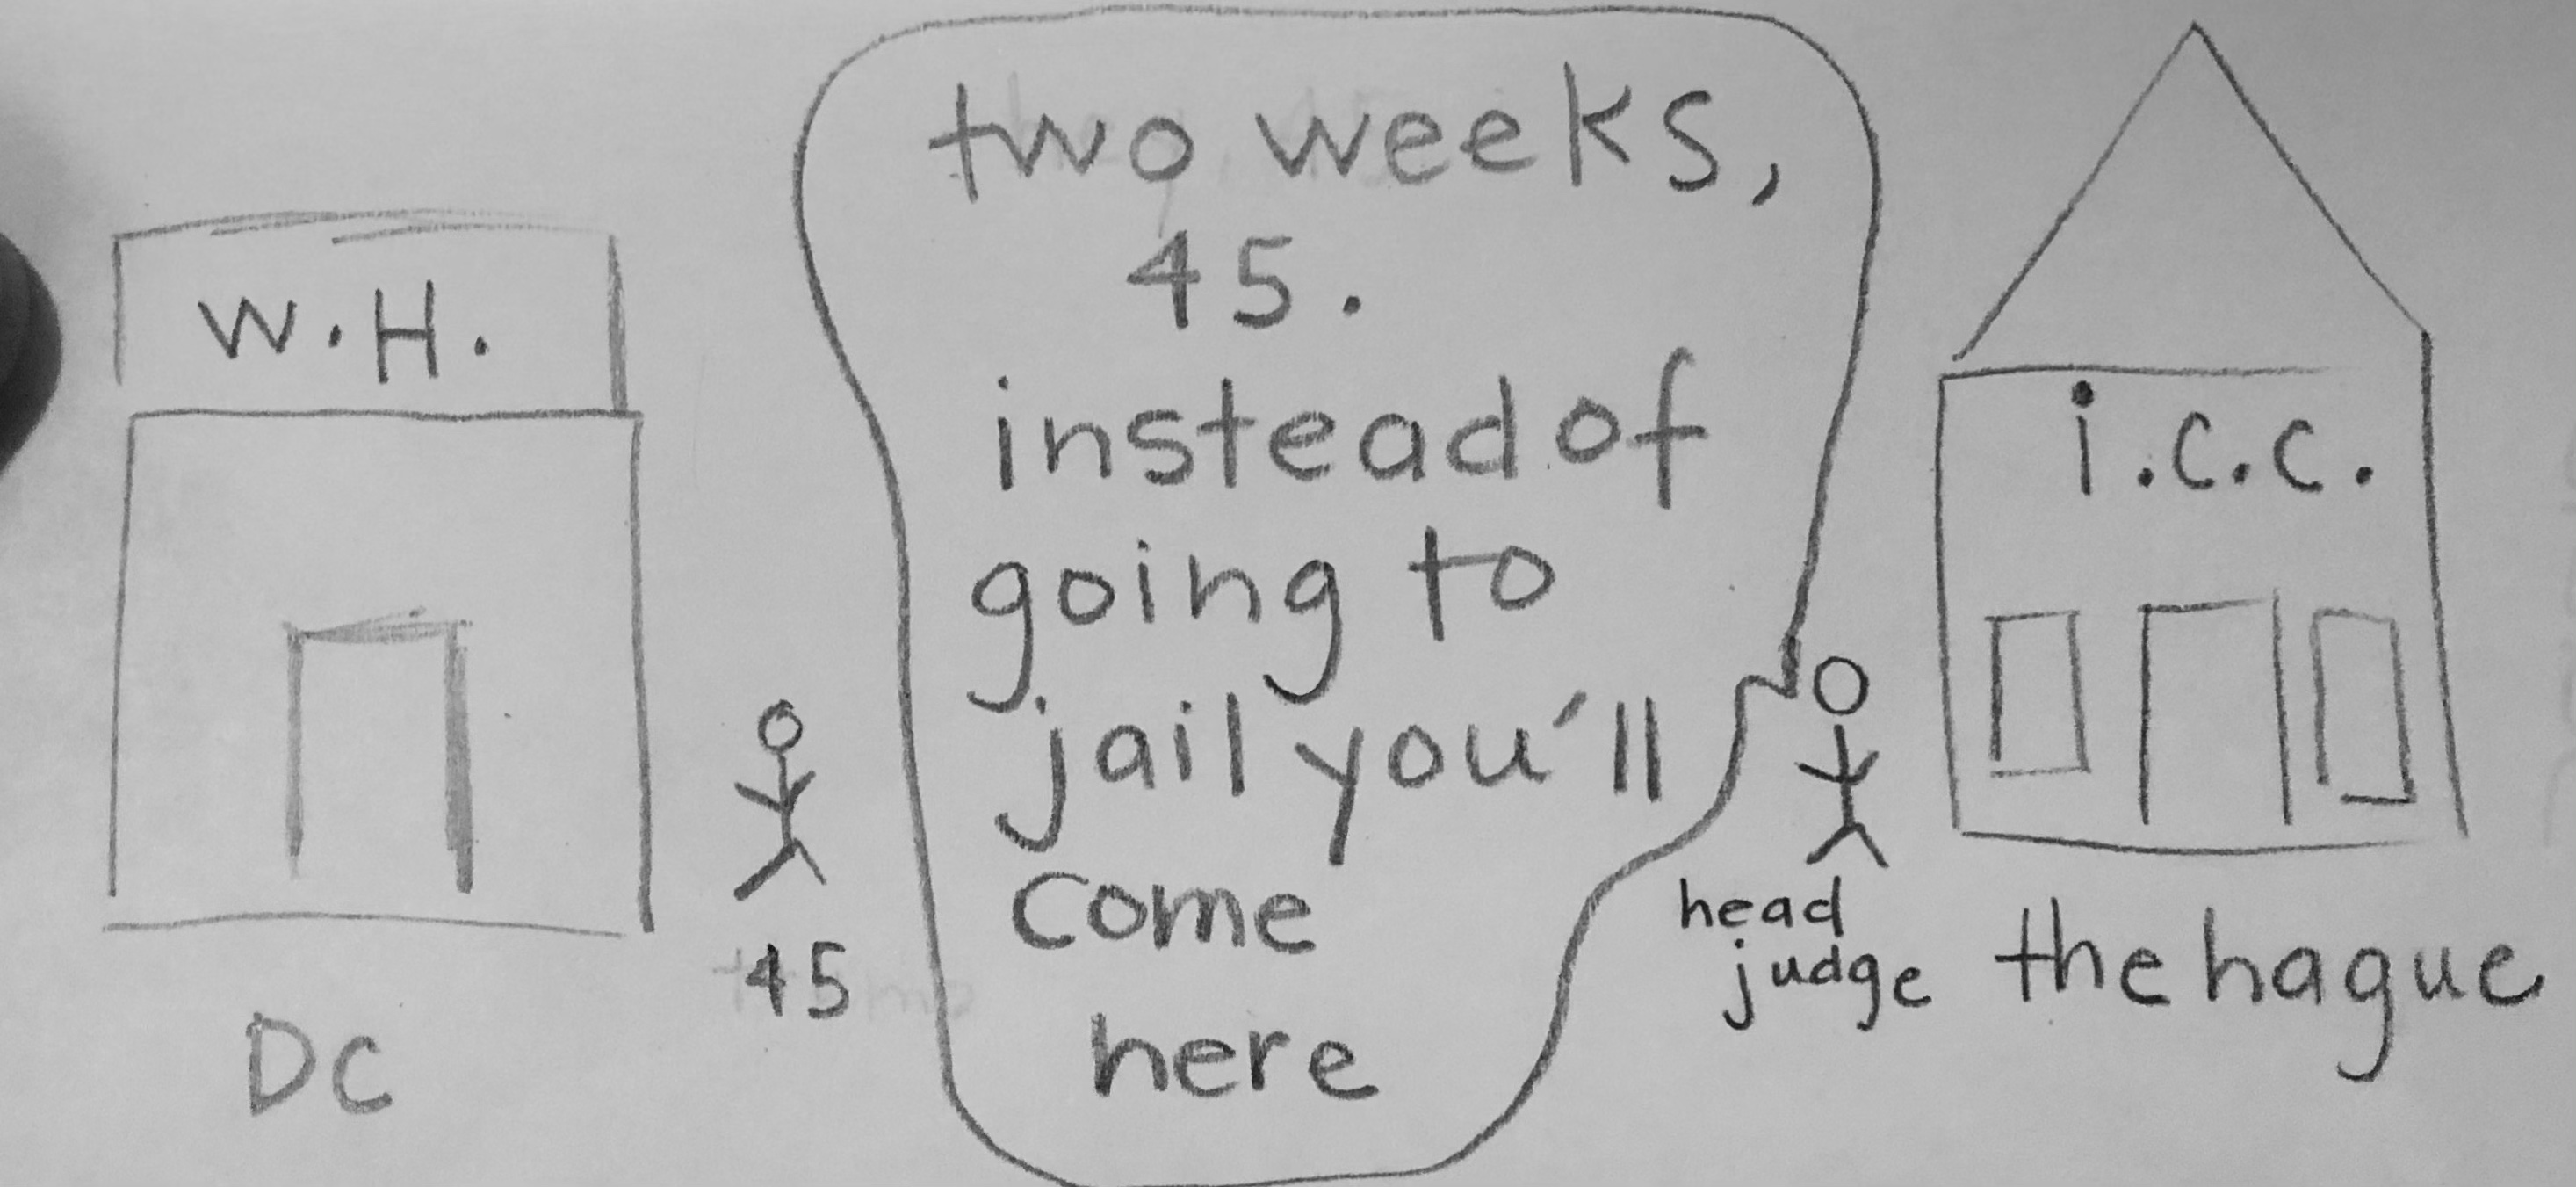 W.H.
DC
45
two weeks,
45.
instead of
going to
jail you'll
come
here
head
judge
i.c.c.
the hague